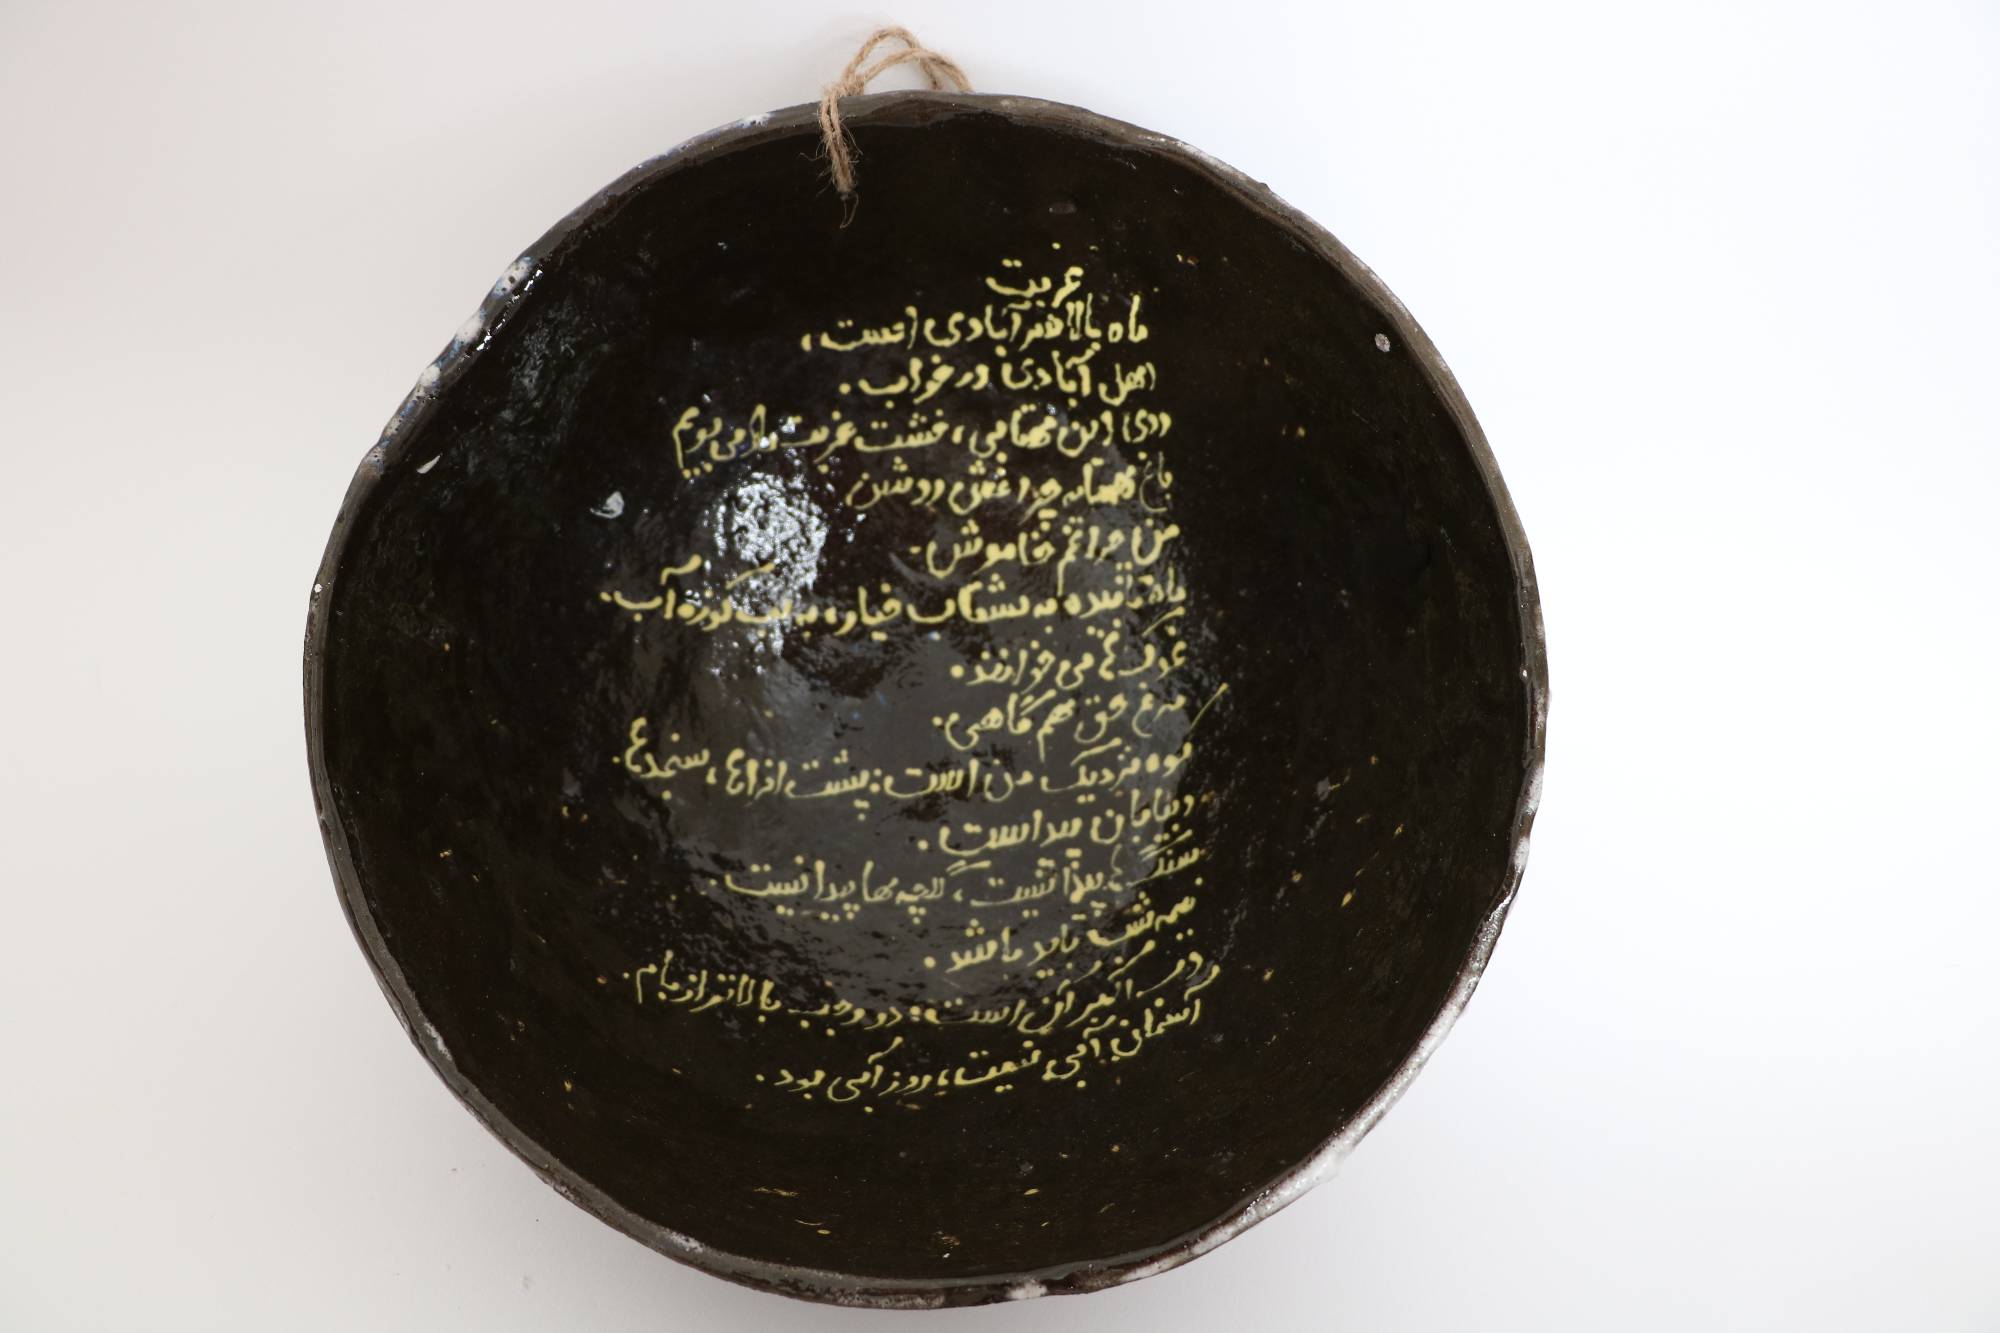 غربت
ماه بالا سر آبادی است،
اهل آبادی در خواب.
روی این مهتابی، خشت غربت را می بویم
باغ همسایه چراغش روشن
من چراغم خاموش.
ماه تابیده به بشقاب خیار، به لب کوزه آب.
غوک ها می خوانند.
مرغ حق هم گاهی.
کوه نزدیک من است: پشت افراها، سنجدها.
و بیابان پیداست.
سنگ ها پیدا نیست، گلچه ها پیدا نیست.
نیمه شب باید باشد.
دب اکبر آن است: دو وجب بالاتر از بام.
آسمان آبی نیست، روز آبی بود.